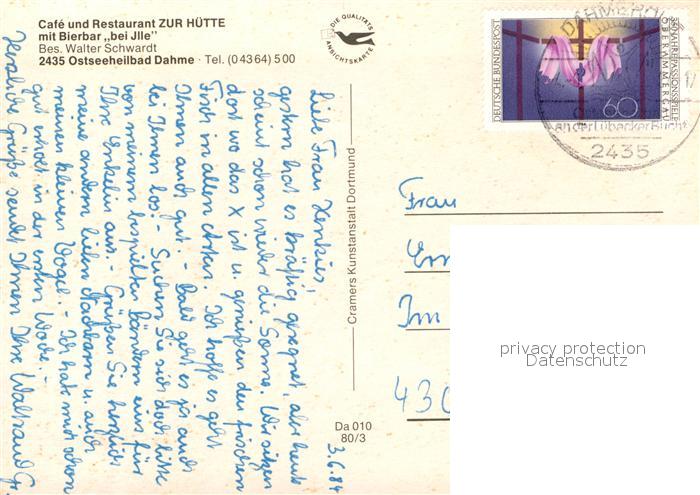 Café und Restaurant ZUR HÜTTE
mit Bierbar „bei Jlle"
Bes. Walter Schwardt
2435 Ostseeheilbad Dahme · Tel. (0 43 64) 5 00
DIE QUALITÄTS
ANSICHTSKARTE
DEUTSCHE BUNDESPOST
350 JAHRE PASSIONSSPIELE
OBERAMMERGAU
60
DAHME
an der Lübecker Bucht
2435
3.6.84
Liebe Frau
gestern hat es kräftig geregnet, aber heute
scheint schon wieder die Sonne. Wir sitzen
dort wo das X ist u. genießen den frischen
Fisch in allen Arten. Ich hoffe es geht
Ihnen auch gut. - Bald geht es ja auch
bei Ihnen los. - Suchen Sie sich doch bitte
von meinem bespielten Bändern eins für
Ihre Enkelin aus. - Grüßen Sie herzlich
meine andern lieben Nachbarn u. auch
meinen kleinen Vogel. - Ich hab mich schon
gut erholt in der ersten Woche. -
Herzliche Grüße sendet Ihnen Ihre Waltraud G.
Cramers Kunstanstalt Dortmund
Da 010
80/3
Frau
Im
430
privacy protection
Datenschutz